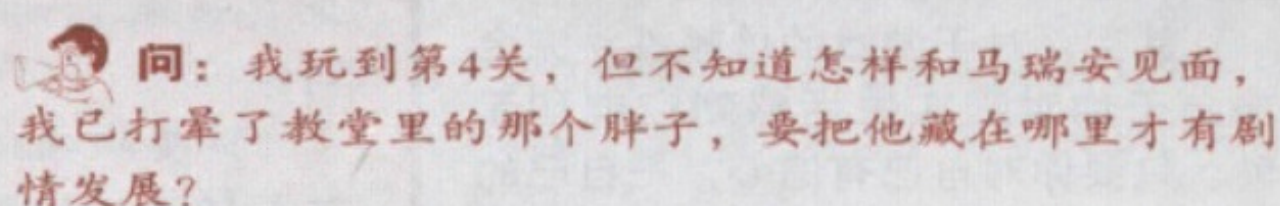 问：我玩到第4关，但不知道怎样和马瑞安见面，
我已打晕了教堂里的那个胖子，要把他藏在哪里才有剧
情发展？